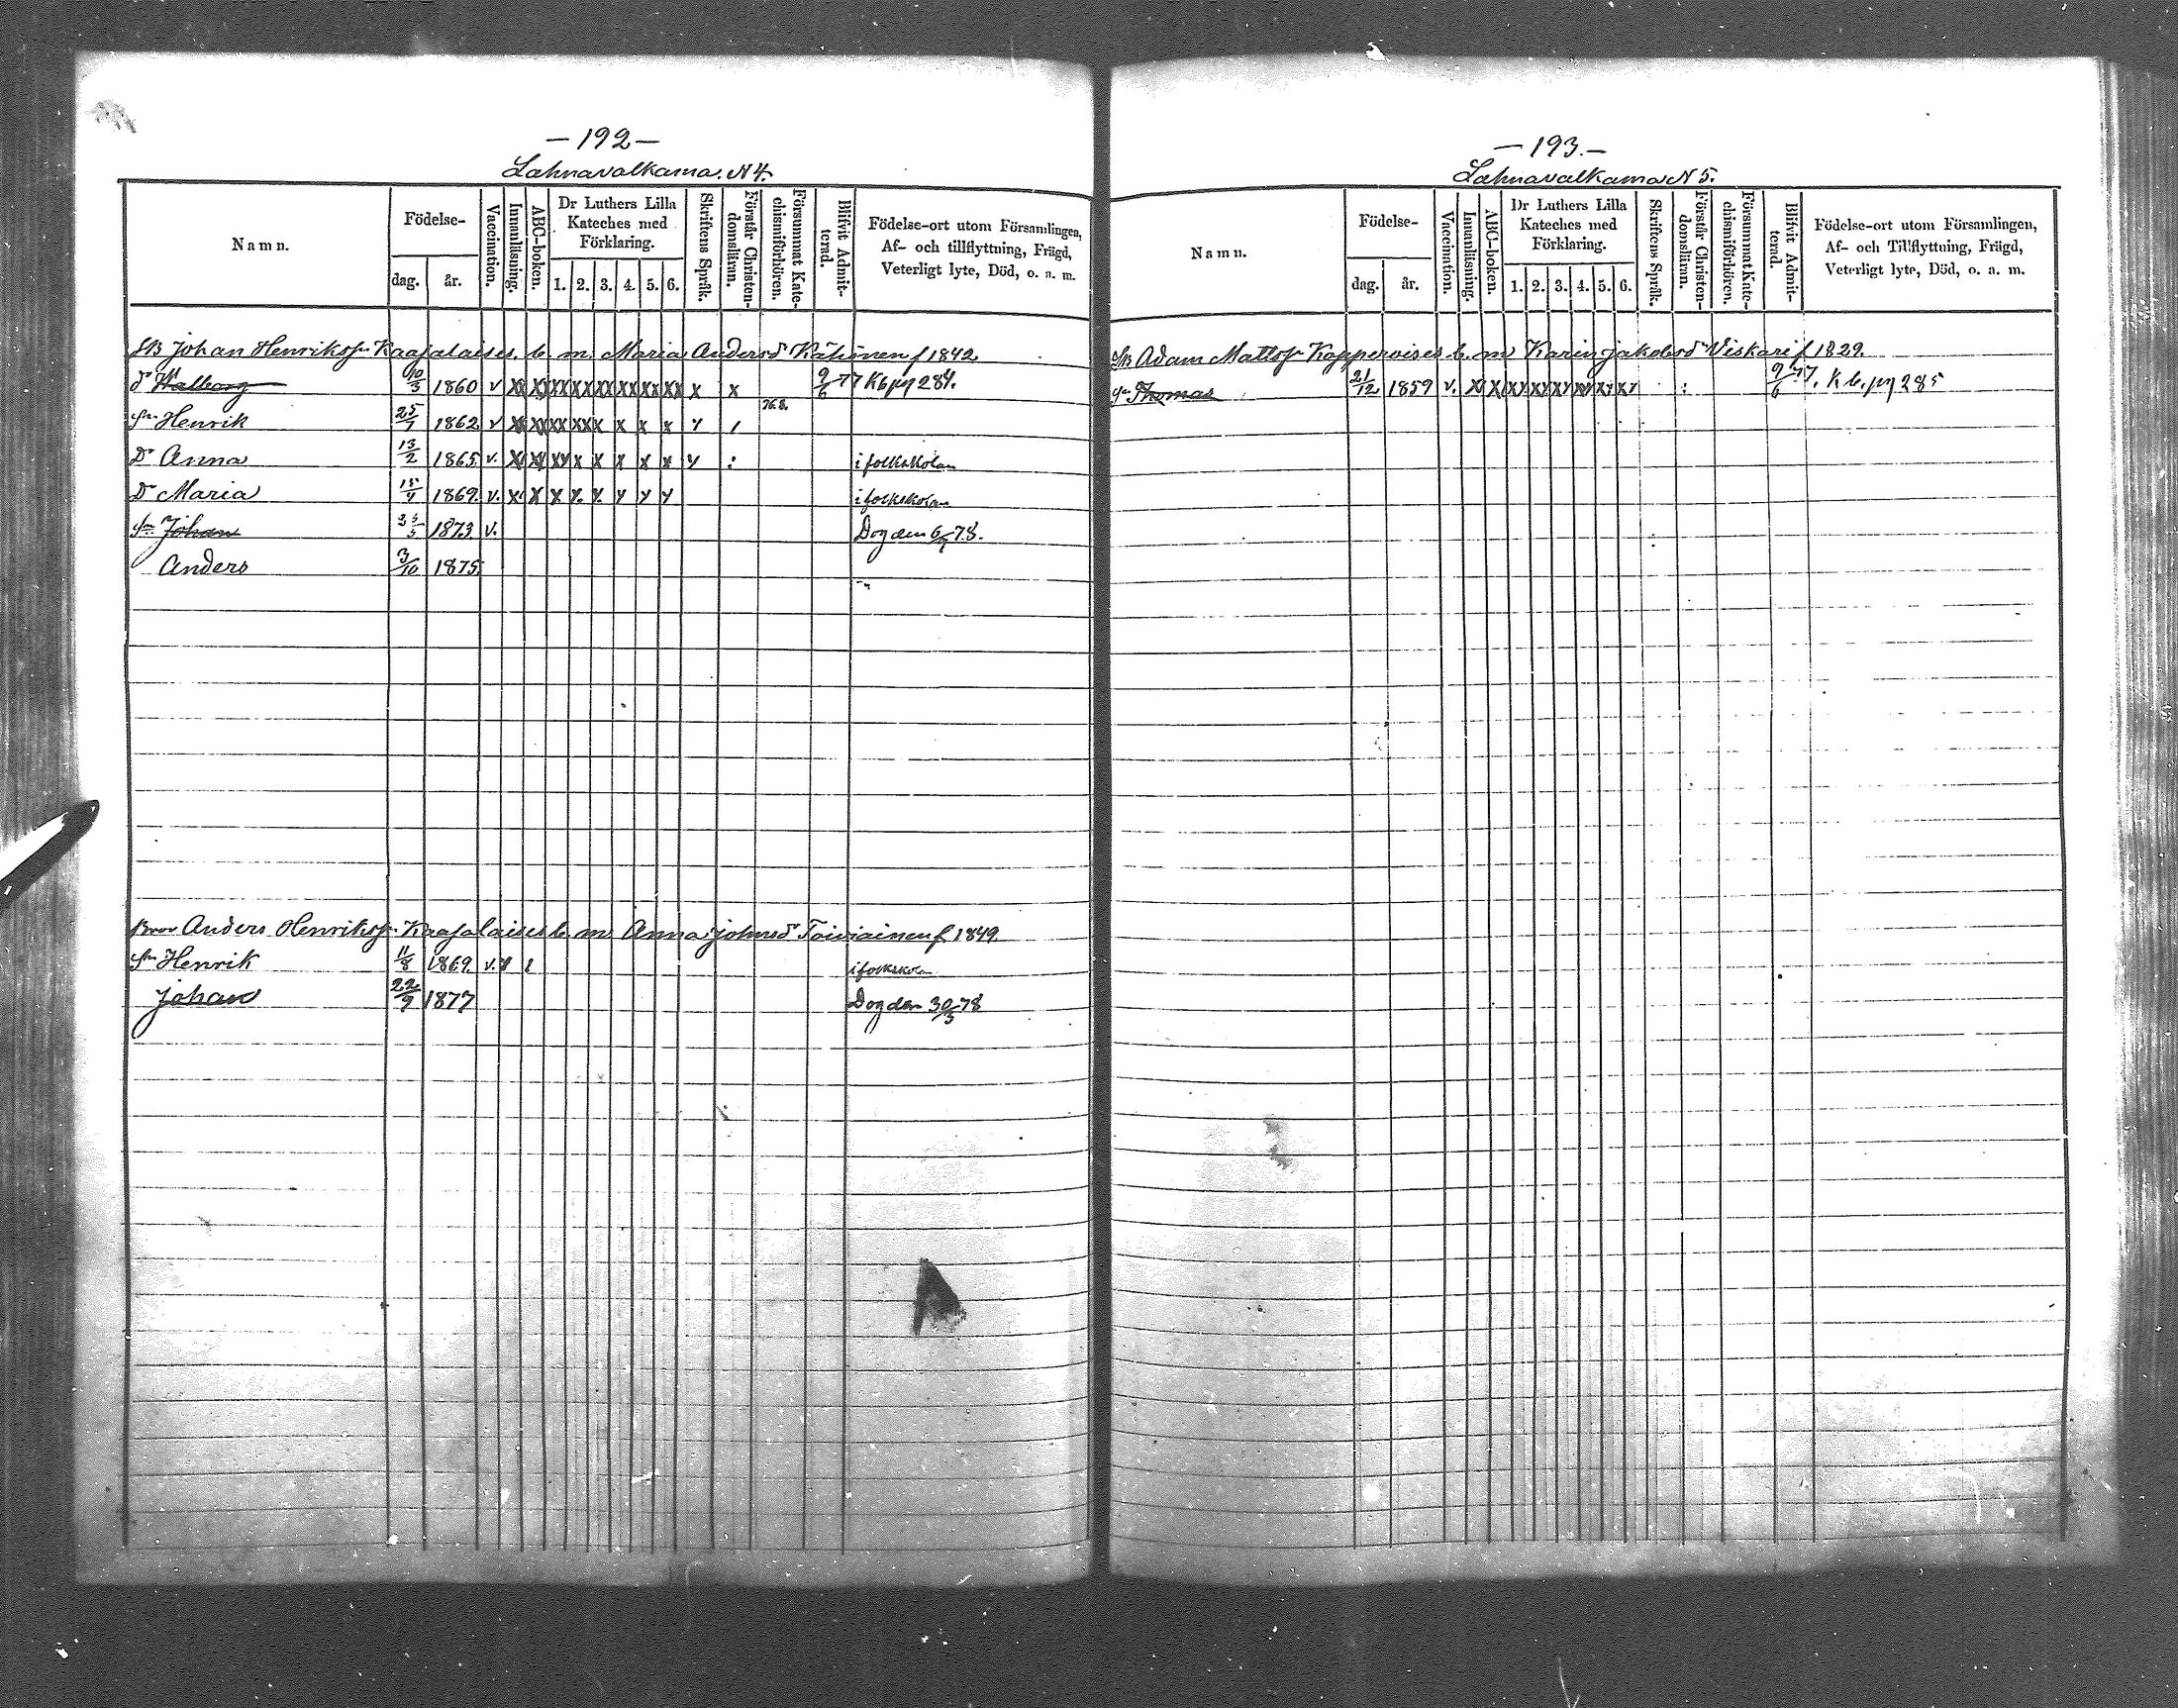 — 192 —
Lahnavalkama. N 4.
Namn.
Födelse-
dag. år.
Vaccination.
Innanläsning.
ABC-boken.
Dr Luthers Lilla
Kateches med
Förklaring.
1. 2. 3. 4. 5. 6.
Skriftens Språk.
Förstår Christen-
domsläran.
Försummat Kate-
chismiförhören.
Blifvit Admit-
terad.
Födelse-ort utom Församlingen,
Af- och tillflyttning, Frägd,
Veterligt lyte, Död, o. a. m.
Johan Henrikss Kaajalaises b. m. Maria Andersd Kähönen f 1842
Dr Walborg 10/3 1860 v xx xx xx xx xx xx xx xx x x 9/6 77 Kb pg 284.
76.8.
Sn Henrik 25/1 1862 v
Dr Anna 13/2 1865 v. i folkskolan
Dr Maria 1869. v. i folkskolan
Sn Johan 1873 v. Dog den 78.
Anders 3/10 1875
Bror Anders Henrikss Kaajalaises b. m Anna Johnsd Toiviainen f 1849.
Sn Henrik 11/8 1869. v. i folkskolan
Johan 22/9 1877 Dog den 30/5 78
— 193. —
Lahnavalkama N 5.
Namn.
Födelse-
dag. år.
Vaccination.
Innanläsning.
ABC-boken.
Dr Luthers Lilla
Kateches med
Förklaring.
1. 2. 3. 4. 5. 6.
Skriftens Språk.
Förstår Christen-
domsläran.
Försummat Kate-
chismiförhören.
Blifvit Admit-
terad.
Födelse-ort utom Församlingen,
Af- och Tillflyttning, Frägd,
Veterligt lyte, Död, o. a. m.
Adam Mattss Kopperoises b. m Karin Jakobsd Viskari f 1829.
Sn Thomas 21/12 1859 v. 9/6 77. K b. pg 285